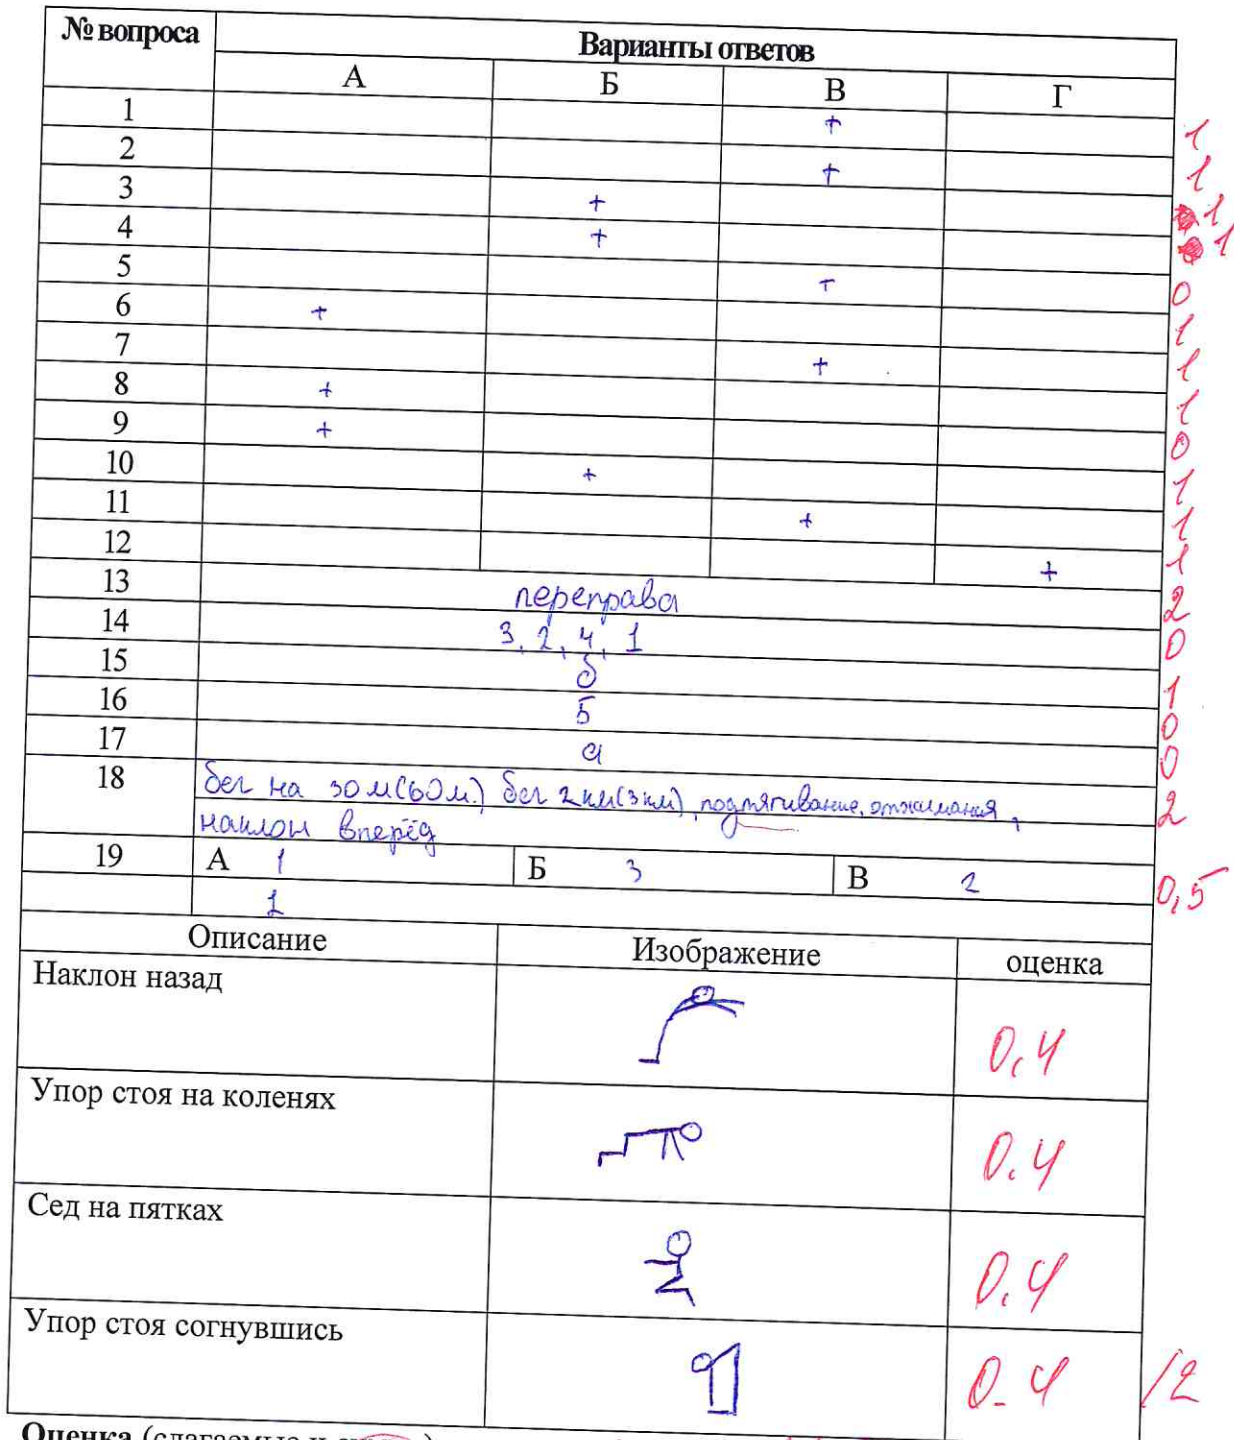 № вопроса Варианты ответов
А Б В Г
1 + 1
2 + 1
3 + 1
4 + 1
5 + 0
6 + 1
7 + 1
8 + 1
9 + 0
10 + 1
11 + 1
12 + 1
13 переправа 2
14 3, 2, 4, 1 0
15 б 1
16 5 0
17 а 0
18 бег на 30 м(60м.) бег 2 км(3км), подтягивание, отжимания, 2
наклон вперёд
19 А 1 Б 3 В 2 0,5
1
Описание Изображение оценка
Наклон назад 0,4
Упор стоя на коленях 0.4
Сед на пятках 0.4
Упор стоя согнувшись 0.4 12
Оценка (слагаемые и